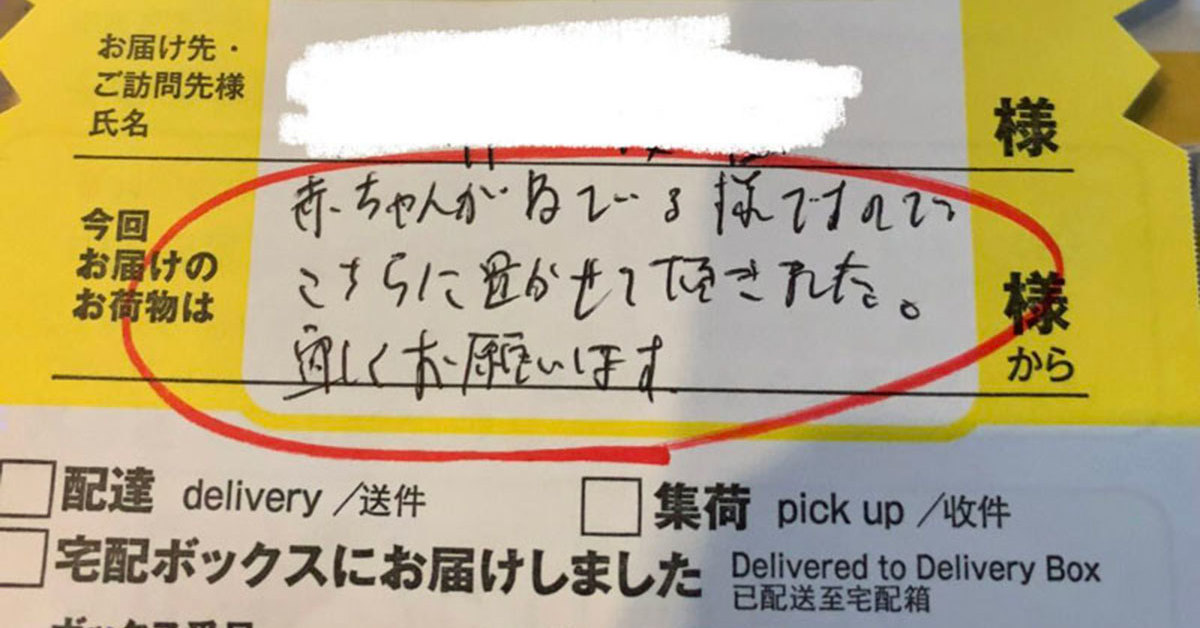 お届け先・
ご訪問先様
氏名
様
今回
お届けの
お荷物は
赤ちゃんが ねている 様ですので
こちらに置かせて頂きました。
宜しくお願いします
様
から
配達 delivery /送件
集荷 pick up /收件
宅配ボックスにお届けしました
Delivered to Delivery Box
已配送至宅配箱